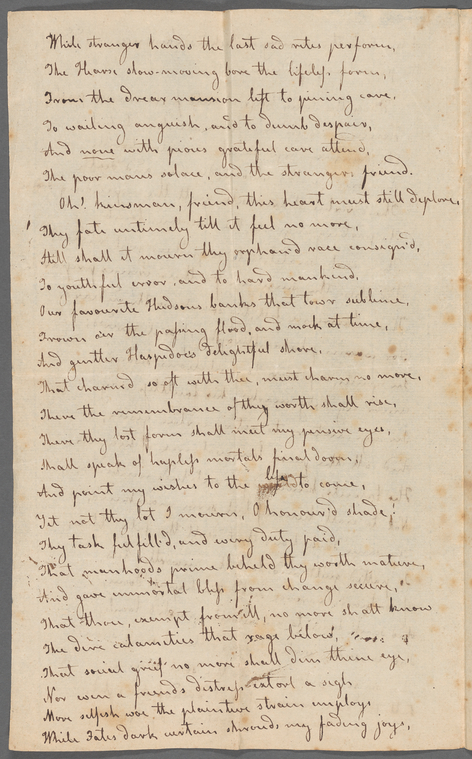 While stranger hands the last sad rites perform,
The Hearse slow-moving bore the lifeless form,
From the drear mansion left to pining care,
To wailing anguish, and to dumb despair,
And none with pious grateful care attend,
The poor mans solace, and the strangers friend.
Oh! kinsman, friend, this heart must still deplore,
Thy fate untimely till it feel no more,
Still shall it mourn thy orphan'd race consign'd,
To youthful error, and to hard mankind.
Our favourite Hudsons banks that tow'r sublime,
Frown o'er the passing flood, and mock at time,
And gentler delightful shore,
That charmed so oft with thee, must charm no more,
There the remembrance of thy worth shall rise,
There thy lost form shall meet my pensive eyes,
Shall speak of hapless mortals final doom,
And point my wishes to the life to come,
Yet not thy lot I mourn, O honour'd shade!
Thy task fulfill'd, and every duty paid,
That manhoods prime beheld thy worth mature,
And gave immortal bliss from change secure,
That thou, exempt from ill, no more shalt know
The dire calamities that rage below,
That social grief no more shall dim thine eye,
Nor even a friends distress extort a sigh
More selfish woe the plaintive strain employs
While Fates dark curtain shrouds my fading joys,